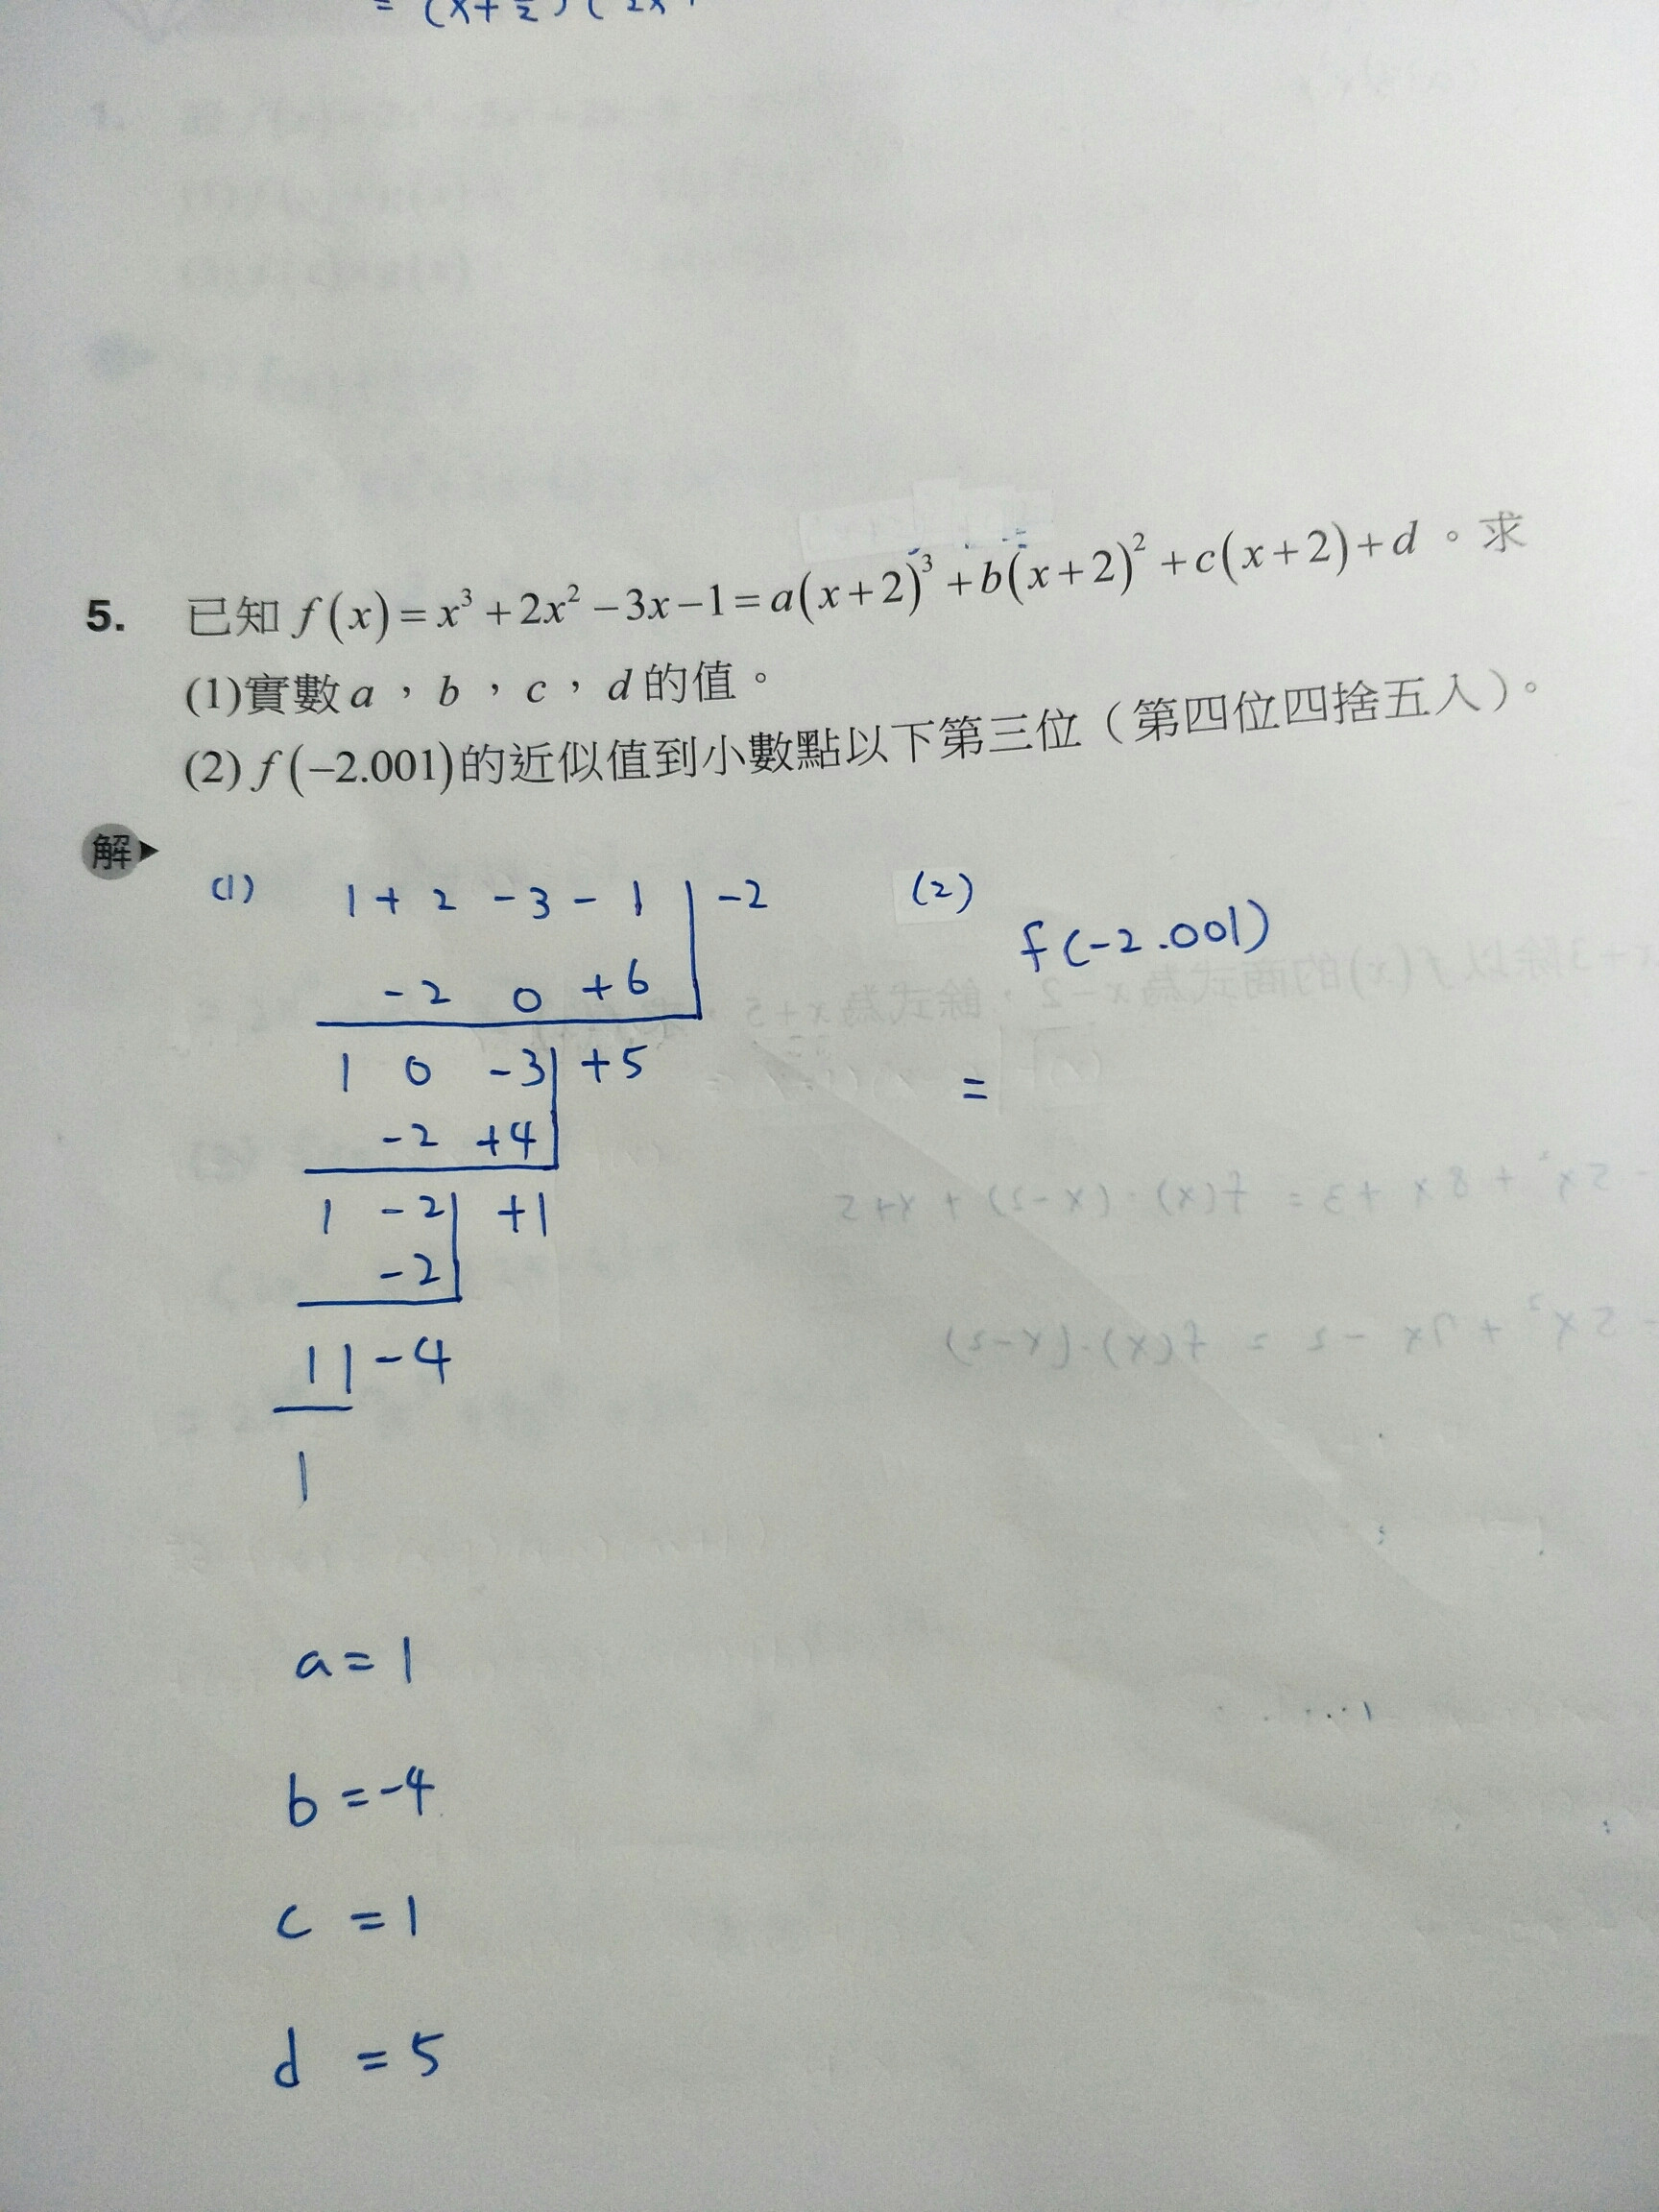 = (x+ 1/2)(2x
5. 已知 f(x)=x³+2x²−3x−1=a(x+2)³+b(x+2)²+c(x+2)+d。求
(1)實數a，b，c，d的值。
(2)f(−2.001)的近似值到小數點以下第三位（第四位四捨五入）。
解
(1) 1+2-3-1 | -2
-2 0 +6
1 0 -3 | +5
-2 +4
1 -2 | +1
-2
1 | -4
1
a=1
b=-4
c=1
d=5
(2) f(-2.001)
=